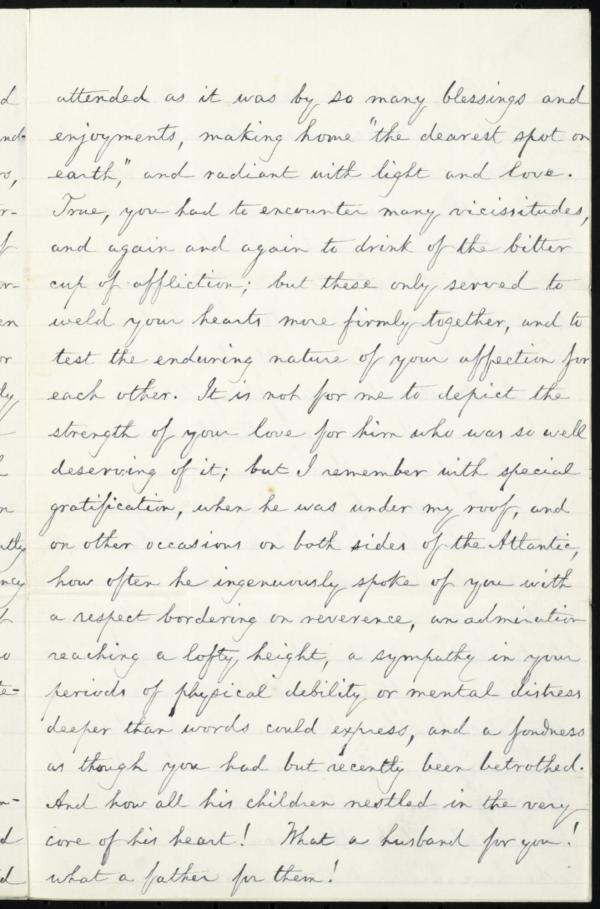 attended as it was by so many blessings and
enjoyments, making home "the dearest spot on
earth," and radiant with light and love.
True, you had to encounter many vicissitudes,
and again and again to drink of the bitter
cup of affliction; but these only served to
weld your hearts more firmly together, and to
test the enduring nature of your affection for
each other. It is not for me to depict the
strength of your love for him who was so well
deserving of it; but I remember with special
gratification, when he was under my roof, and
on other occasions on both sides of the Atlantic,
how often he ingenuously spoke of you with
a respect bordering on reverence, an admiration
reaching a lofty height, a sympathy in your
periods of physical debility or mental distress
deeper than words could express, and a fondness
as though you had but recently been betrothed.
And how all his children nestled in the very
core of his heart! What a husband for you!
what a father for them!